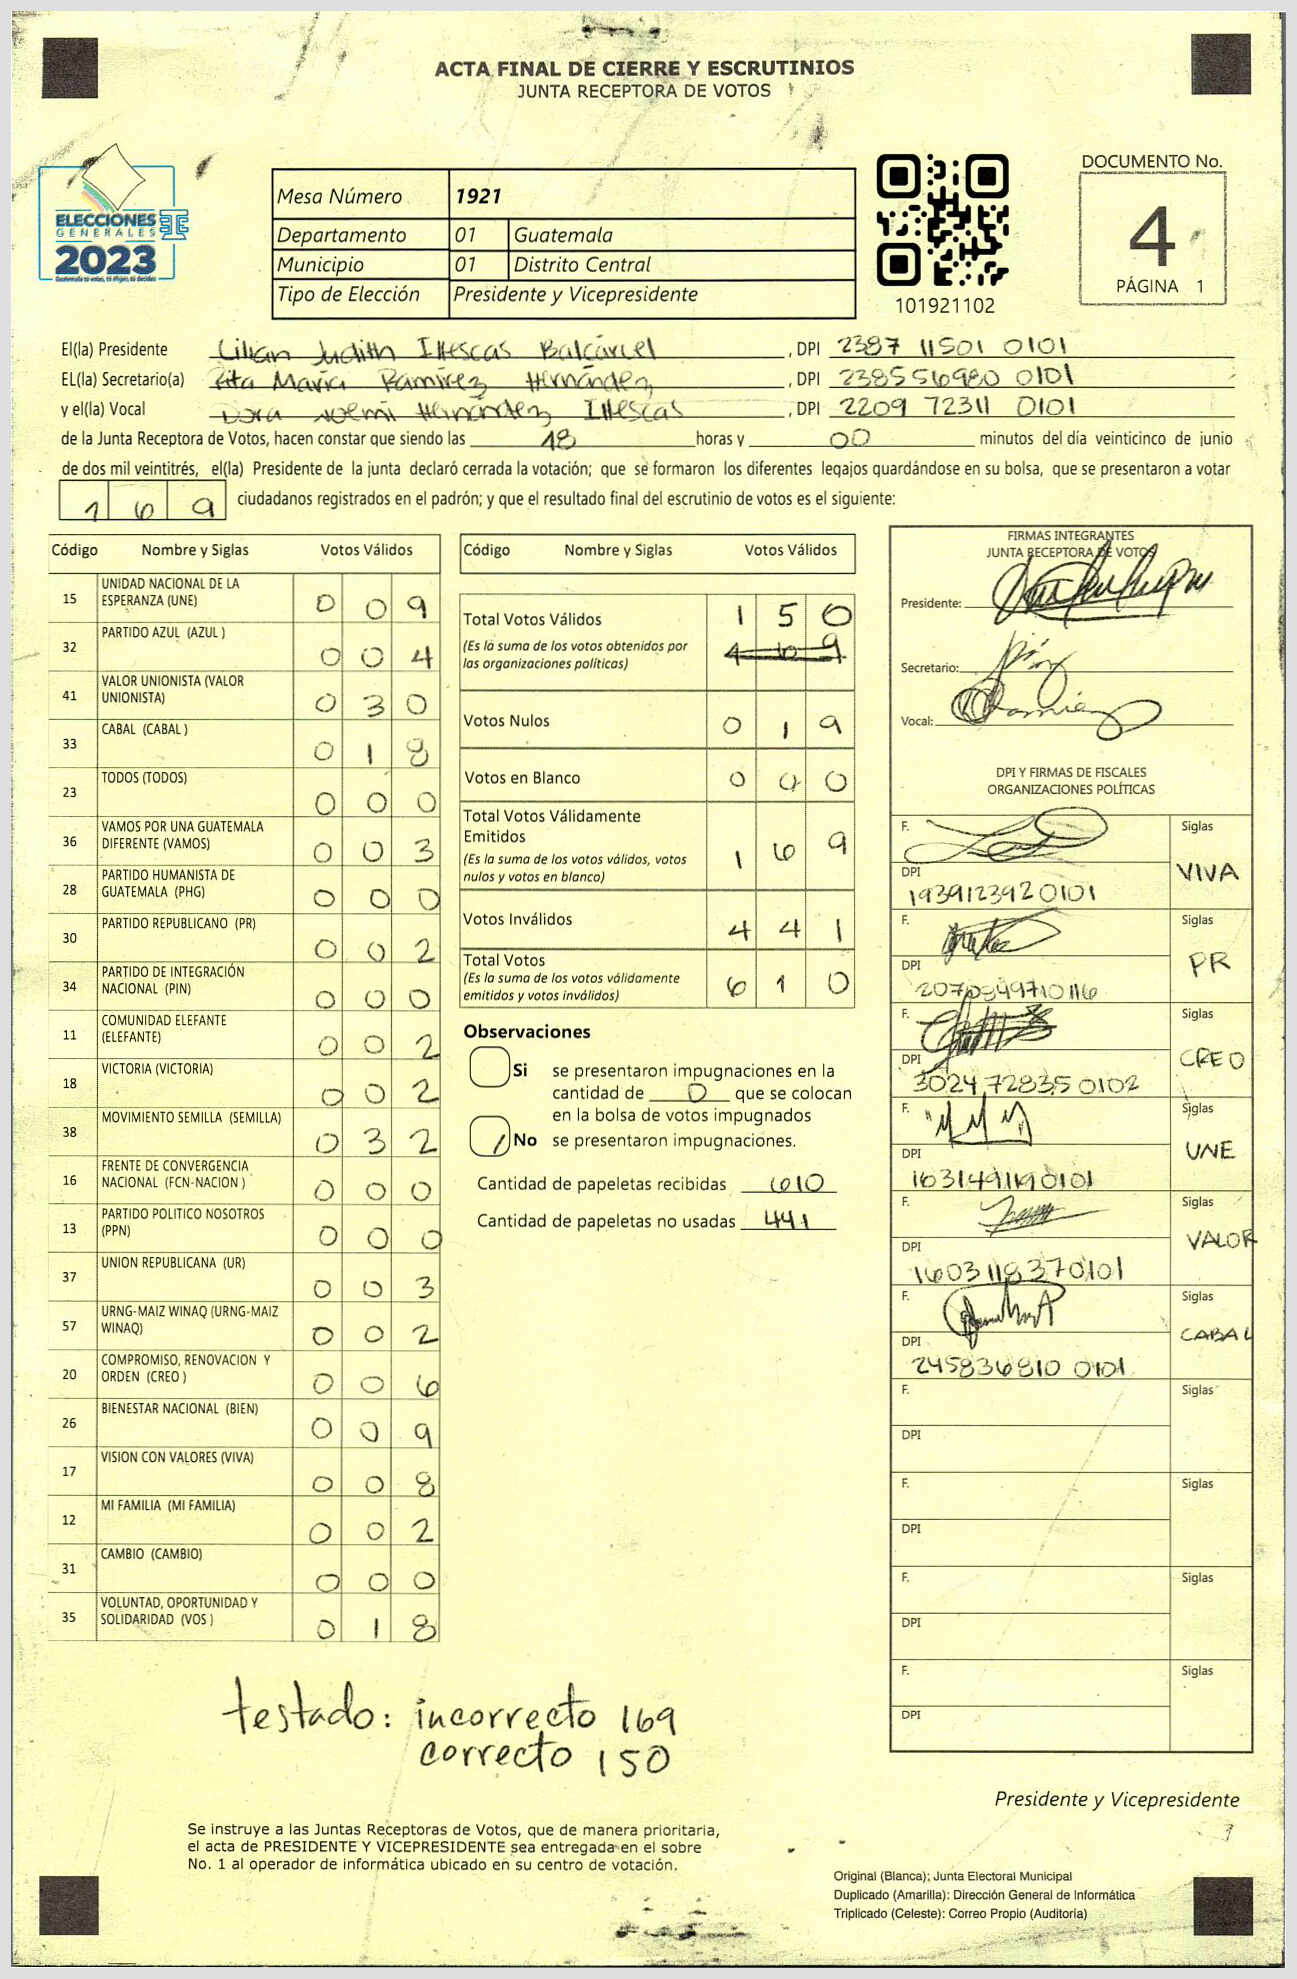 ACTA FINAL DE CIERRE Y ESCRUTINIOS
JUNTA RECEPTORA DE VOTOS
ELECCIONES
GENERALES
2023
Guatemala tú votas, tú eliges, tú decides
Mesa Número 1921
Departamento 01 Guatemala
Municipio 01 Distrito Central
Tipo de Elección Presidente y Vicepresidente
101921102
DOCUMENTO No.
4
PÁGINA 1
El(la) Presidente Lilian Judith Illescas Balcárcel, DPI 2387 11501 0101
EL(la) Secretario(a) Rita María Ramírez Hernández, DPI 238556980 0101
y el(la) Vocal Dora Noemí Hernández Illescas, DPI 2209 72311 0101
de la Junta Receptora de Votos, hacen constar que siendo las 18 horas y 00 minutos del día veinticinco de junio
de dos mil veintitrés, el(la) Presidente de la junta declaró cerrada la votación; que se formaron los diferentes legajos quardándose en su bolsa, que se presentaron a votar
169 ciudadanos registrados en el padrón; y que el resultado final del escrutinio de votos es el siguiente:
Código Nombre y Siglas Votos Válidos
15 UNIDAD NACIONAL DE LA ESPERANZA (UNE) 0 0 9
32 PARTIDO AZUL (AZUL ) 0 0 4
41 VALOR UNIONISTA (VALOR UNIONISTA) 0 3 0
33 CABAL (CABAL ) 0 1 8
23 TODOS (TODOS) 0 0 0
36 VAMOS POR UNA GUATEMALA DIFERENTE (VAMOS) 0 0 3
28 PARTIDO HUMANISTA DE GUATEMALA (PHG) 0 0 0
30 PARTIDO REPUBLICANO (PR) 0 0 2
34 PARTIDO DE INTEGRACIÓN NACIONAL (PIN) 0 0 0
11 COMUNIDAD ELEFANTE (ELEFANTE) 0 0 2
18 VICTORIA (VICTORIA) 0 0 2
38 MOVIMIENTO SEMILLA (SEMILLA) 0 3 2
16 FRENTE DE CONVERGENCIA NACIONAL (FCN-NACION ) 0 0 0
13 PARTIDO POLITICO NOSOTROS (PPN) 0 0 0
37 UNION REPUBLICANA (UR) 0 0 3
57 URNG-MAIZ WINAQ (URNG-MAIZ WINAQ) 0 0 2
20 COMPROMISO, RENOVACION Y ORDEN (CREO ) 0 0 6
26 BIENESTAR NACIONAL (BIEN) 0 0 9
17 VISION CON VALORES (VIVA) 0 0 8
12 MI FAMILIA (MI FAMILIA) 0 0 2
31 CAMBIO (CAMBIO) 0 0 0
35 VOLUNTAD, OPORTUNIDAD Y SOLIDARIDAD (VOS ) 0 1 8
Código Nombre y Siglas Votos Válidos
Total Votos Válidos 1 5 0
(Es la suma de los votos obtenidos por
las organizaciones políticas)
Votos Nulos 0 1 9
Votos en Blanco 0 0 0
Total Votos Válidamente
Emitidos
(Es la suma de los votos válidos, votos
nulos y votos en blanco) 1 6 9
Votos Inválidos 4 4 1
Total Votos
(Es la suma de los votos válidamente
emitidos y votos inválidos) 6 1 0
Observaciones
Si se presentaron impugnaciones en la
cantidad de 0 que se colocan
en la bolsa de votos impugnados
No se presentaron impugnaciones.
Cantidad de papeletas recibidas 610
Cantidad de papeletas no usadas 441
FIRMAS INTEGRANTES
JUNTA RECEPTORA DE VOTOS
Presidente:
Secretario:
Vocal:
DPI Y FIRMAS DE FISCALES
ORGANIZACIONES POLÍTICAS
F. Siglas VIVA
DPI 1939123920101
F. Siglas PR
DPI 2070849710116
F. Siglas CREO
DPI 3024728350102
F. Siglas UNE
DPI 1631491190101
F. Siglas VALOR
DPI 1603118370101
F. Siglas CABAL
DPI 245836810 0101
F. Siglas
DPI
F. Siglas
DPI
F. Siglas
DPI
F. Siglas
DPI
testado: incorrecto 169
correcto 150
Presidente y Vicepresidente
Se instruye a las Juntas Receptoras de Votos, que de manera prioritaria,
el acta de PRESIDENTE Y VICEPRESIDENTE sea entregada en el sobre
No. 1 al operador de informática ubicado en su centro de votación.
Original (Blanca); Junta Electoral Municipal
Duplicado (Amarilla): Dirección General de Informática
Triplicado (Celeste): Correo Propio (Auditoría)